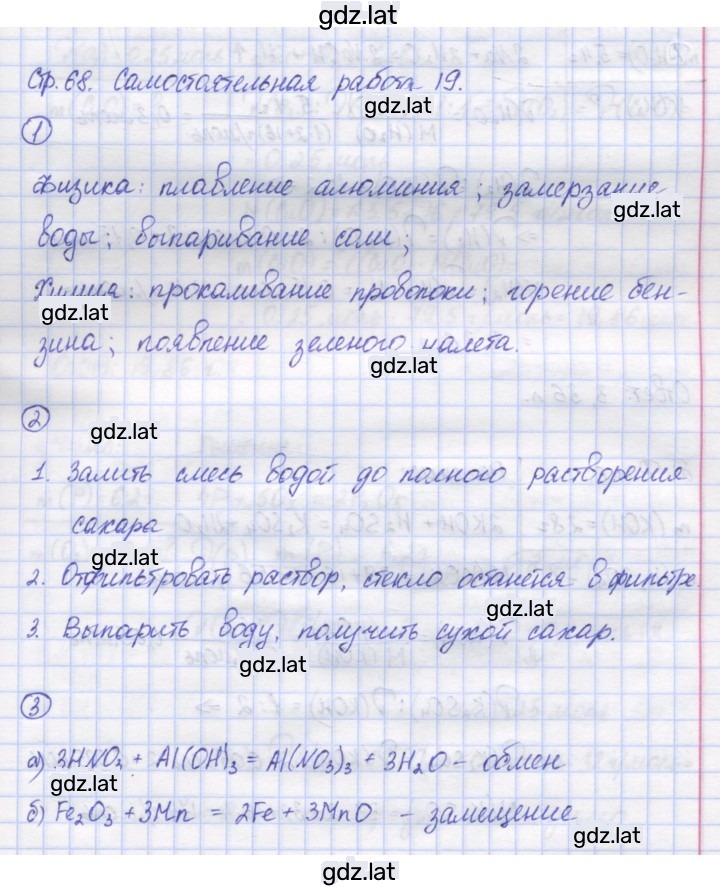 gdz.lat
Стр. 68. Самостоятельная работа 19.
gdz.lat
1
Физика: плавление алюминия; замерзание
gdz.lat
воды; выпаривание соли;
Химия: прокаливание проволоки; горение бен-
gdz.lat
зина; появление зеленого налета.
gdz.lat
2
gdz.lat
1. Залить смесь водой до полного растворения
сахара
gdz.lat
2. Отфильтровать раствор, стекло останется в фильтре
gdz.lat
3. Выпарить воду, получить сухой сахар.
gdz.lat
3
а) 3HNO₃ + Al(OH)₃ = Al(NO₃)₃ + 3H₂O - обмен
gdz.lat
б) Fe₂O₃ + 3Mn = 2Fe + 3MnO - замещение
gdz.lat
gdz.lat